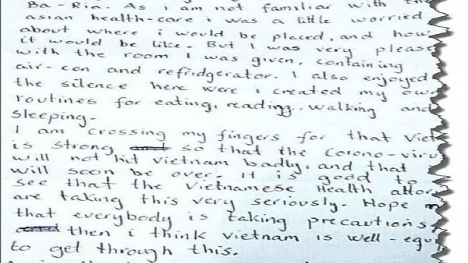 Ba-Ria. As i am not familiar with the
asian health-care i was a little worried
about where i would be placed, and how
it would be like. But I was very please
with the room I was given, containing
air-con and refridgerator. I also enjoyed
the silence here were i created my own
routines for eating, reading, walking and
sleeping.
I am crossing my fingers for that Viet
is strong so that the Corona-viru
will not hit vietnam badly, and that
will soon be over. It is good to
see that the Vietnamese Health attor
are taking this very seriously. Hope m
that everybody is taking precautions,
then i think vietnam is well-equi
to get through this.